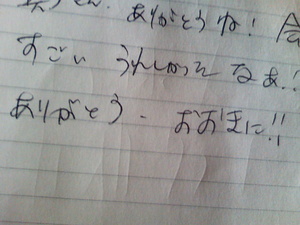 ありがとうね!
すごいうれしかったなあ!
ありがとう. おおきに!!